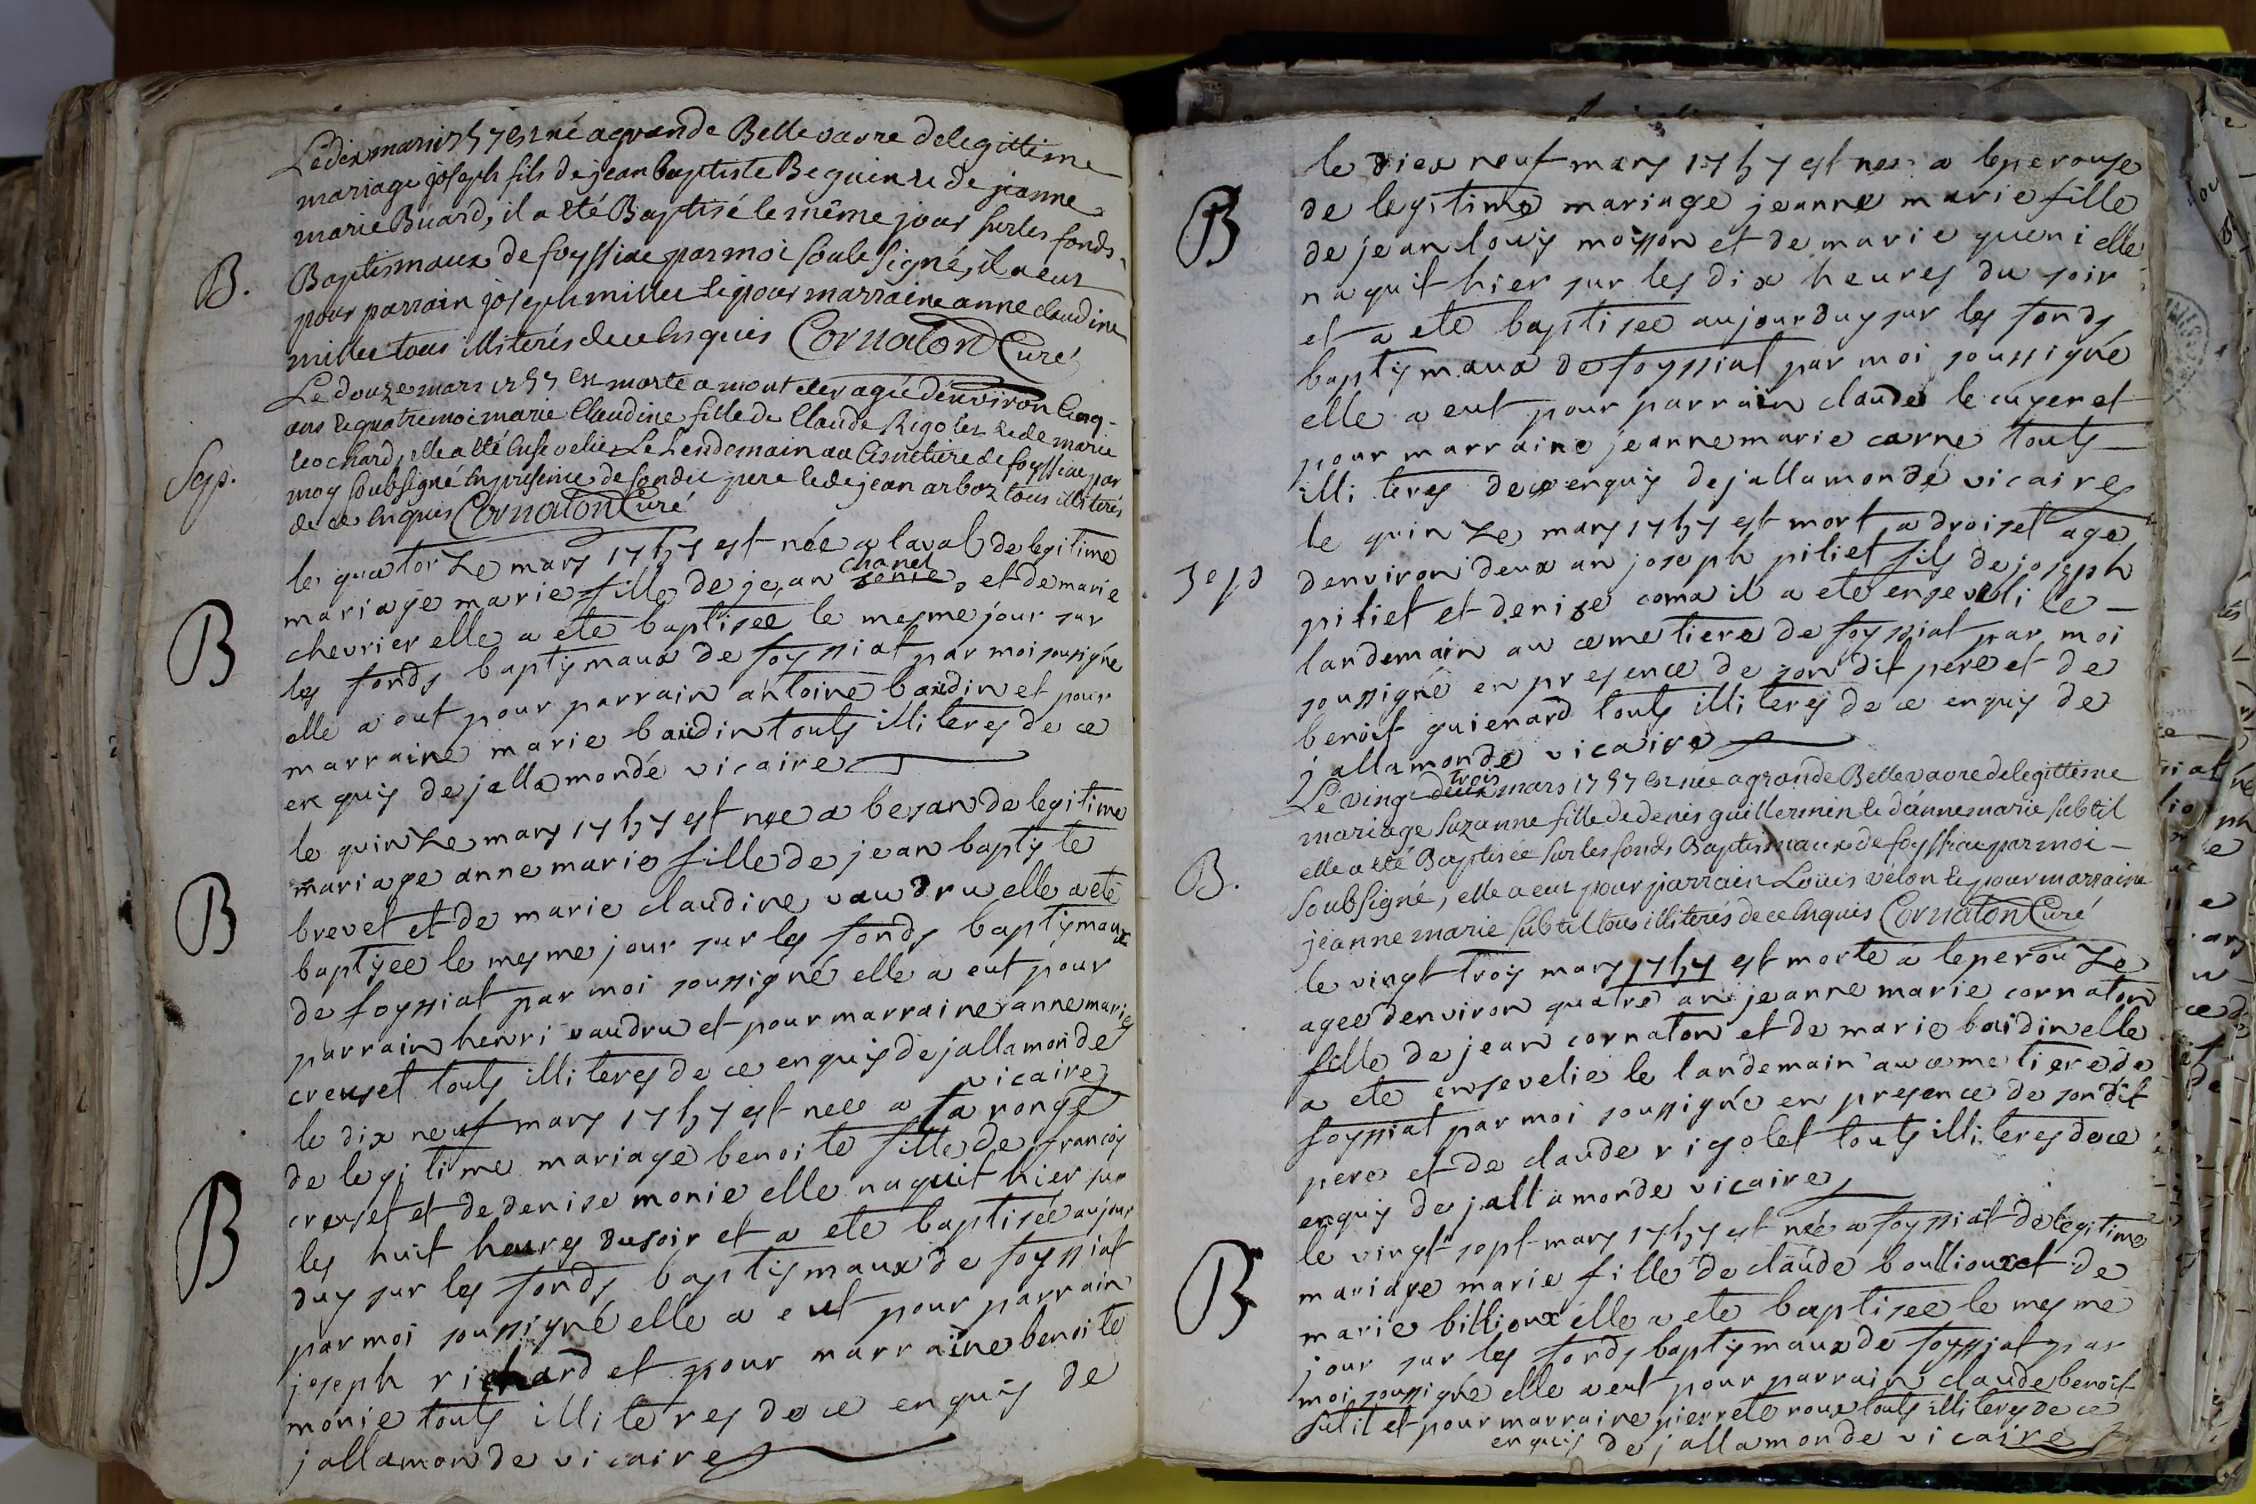 Le dix mars 1757 est né a grande Bellevavre de legittime
mariage joseph fils de jean baptiste Beguin et de jeanne
marie Buard, il a eté Baptisé le même jour sur les fonds
B.
Baptismaux de foyssiac par moi soubsigné, il a eut
pour parrain joseph millet et pour marraine anne claudine
millet tous illiterés de ce Enquis Cornaton Curé
Le douze mars 1757 est morte a montcler agée d'environ Cinq
ans et quatre moi marie Claudine fille de Claude Rigolet et de marie
bochard, elle a eté Ensevelie Le Lendemain au Cimetiere de foyssiac par
Sep.
moy soubsigné En presence de sondit pere et de jean arboz tous illiterés
de ce Enquis Cornaton Curé
le quatorze mars 1757 est née a laval de legitime
mariage marie fille de jean chanel et de marie
B
chevrier elle a ete baptisee le mesme jour sur
les fonds baptismaux de foyssiat par moi soussigné
elle a eut pour parrain antoine baudin et pour
marraine marie baudin touts illiteres de ce
enquis de jallamondé vicaire
le quinze mars 1757 est nee a besan de legitime
mariage anne marie fille de jean baptiste
B
brevet et de marie claudine vaudru elle a ete
baptisee le mesme jour sur les fonds baptismaux
de foyssiat par moi soussigné elle a eut pour
parrain henri vaudru et pour marraine anne marie
creuset touts illiteres de ce enquis de jallamonde
vicaire
le dix neuf mars 1757 est nee a la ronge
de legitime mariage benoite fille de francois
B
creuset et de denise monie elle naquit hier sur
les huit heures du soir et a ete baptisée aujour
duy sur les fonds baptismaux de foyssiat
par moi soussigné elle a eut pour parrain
joseph richard et pour marraine benoite
monie touts illiteres de ce enquis de
jallamonde vicaire
le diex neuf mars 1757 est nee a leperouse
B
de legitime mariage jeanne marie fille
de jean louis moisson et de marie queni elle
naquit hier sur les dix heures du soir
et a ete baptisee aujourduy sur les fonds
baptismaux de foyssiat par moi soussigné
elle a eut pour parrain claude lecuyer et
pour marraine jeanne marie carne touts
illiteres de ce enquis de jallamondé vicaire
le quinze mars 1757 est mort a droiset age
Sep
denviron deux an joseph piliet fils de joseph
piliet et denise coma il a ete enseveli le
landemain au cemetiere de foyssiat par moi
soussigné en presence de son dit pere et de
benoit guienard touts illiteres de ce enquis de
jallamonde vicaire
Le vingt trois mars 1757 est née a grande Bellevavre de legittime
mariage suzanne fille de denis guillermin et d'anne marie subtil
B.
elle a eté Baptisée sur les fonds Baptismaux de foyssiac par moi
soubsigné, elle a eut pour parrain Louis vélon et pour marraine
jeanne marie subtil tous illiterés de ce Enquis Cornaton Curé
le vingt trois mars 1757 est morte a leperouze
agee denviron quatre an jeanne marie cornaton
fille de jean cornaton et de marie baidin elle
a ete ensevelie le landemain au cemetiere de
foyssiat par moi soussigné en presence de son dit
pere et de claude rigolet touts illiteres de ce
enquis de jallamonde vicaire
le vingt sept mars 1757 est née a foyssiat de legitime
B
mariage marie fille de claude boullioux et de
marie billioux elle a ete baptisee le mesme
jour sur les fonds baptismaux de foyssiat par
moi soussigné elle a eut pour parrain claude benoit
sutil et pour marraine pierrete roux touts illiteres de ce
enquis de jallamonde vicaire